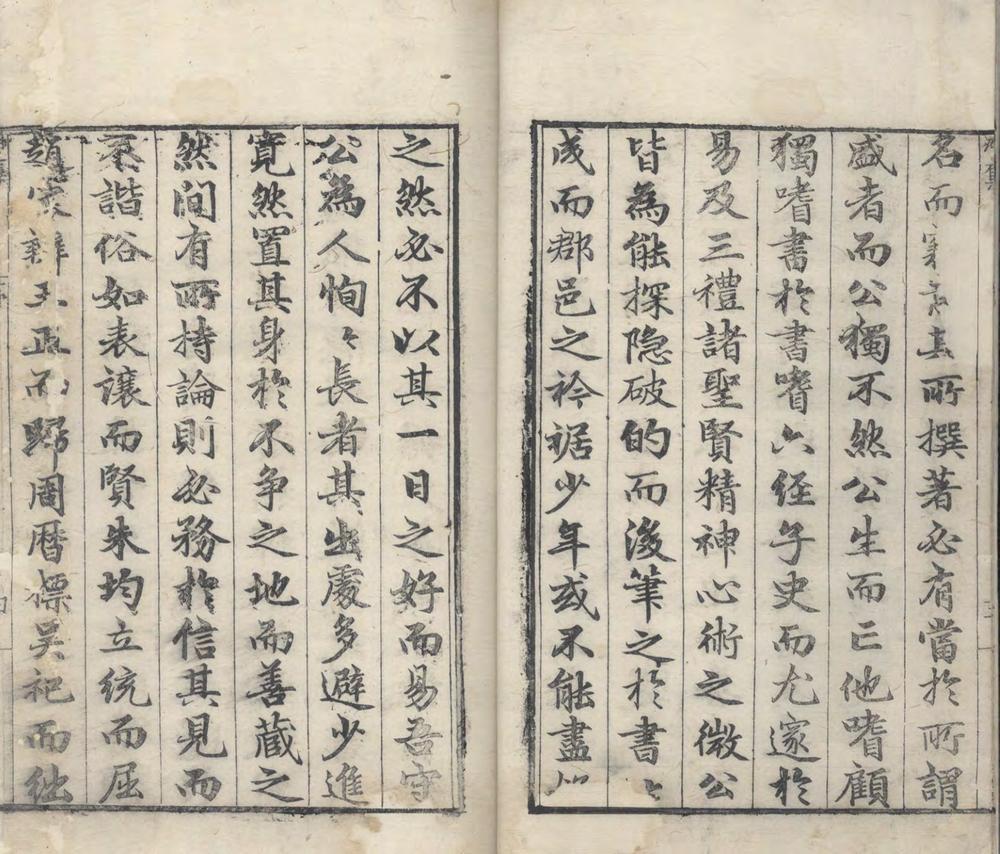 名而 其所撰著必有當於所謂
盛者而公獨不然公生而亡他嗜顧
獨嗜書於書嗜六經子史而尤邃於
易及三禮諸聖賢精神心術之微公
皆為能探隐破的而後筆之於書〻
成而郡邑之衿裾少年或不能盡
之然必不以其一日之好而易吾守
公為人恂〻長者其出處多避少進
寬然置其身於不争之地而善藏之
然间有所持論則必務於信其見而
不諧俗如表讓而賢朱均立統而屈
趙宋辨 正而歸周曆標吴祀而絀